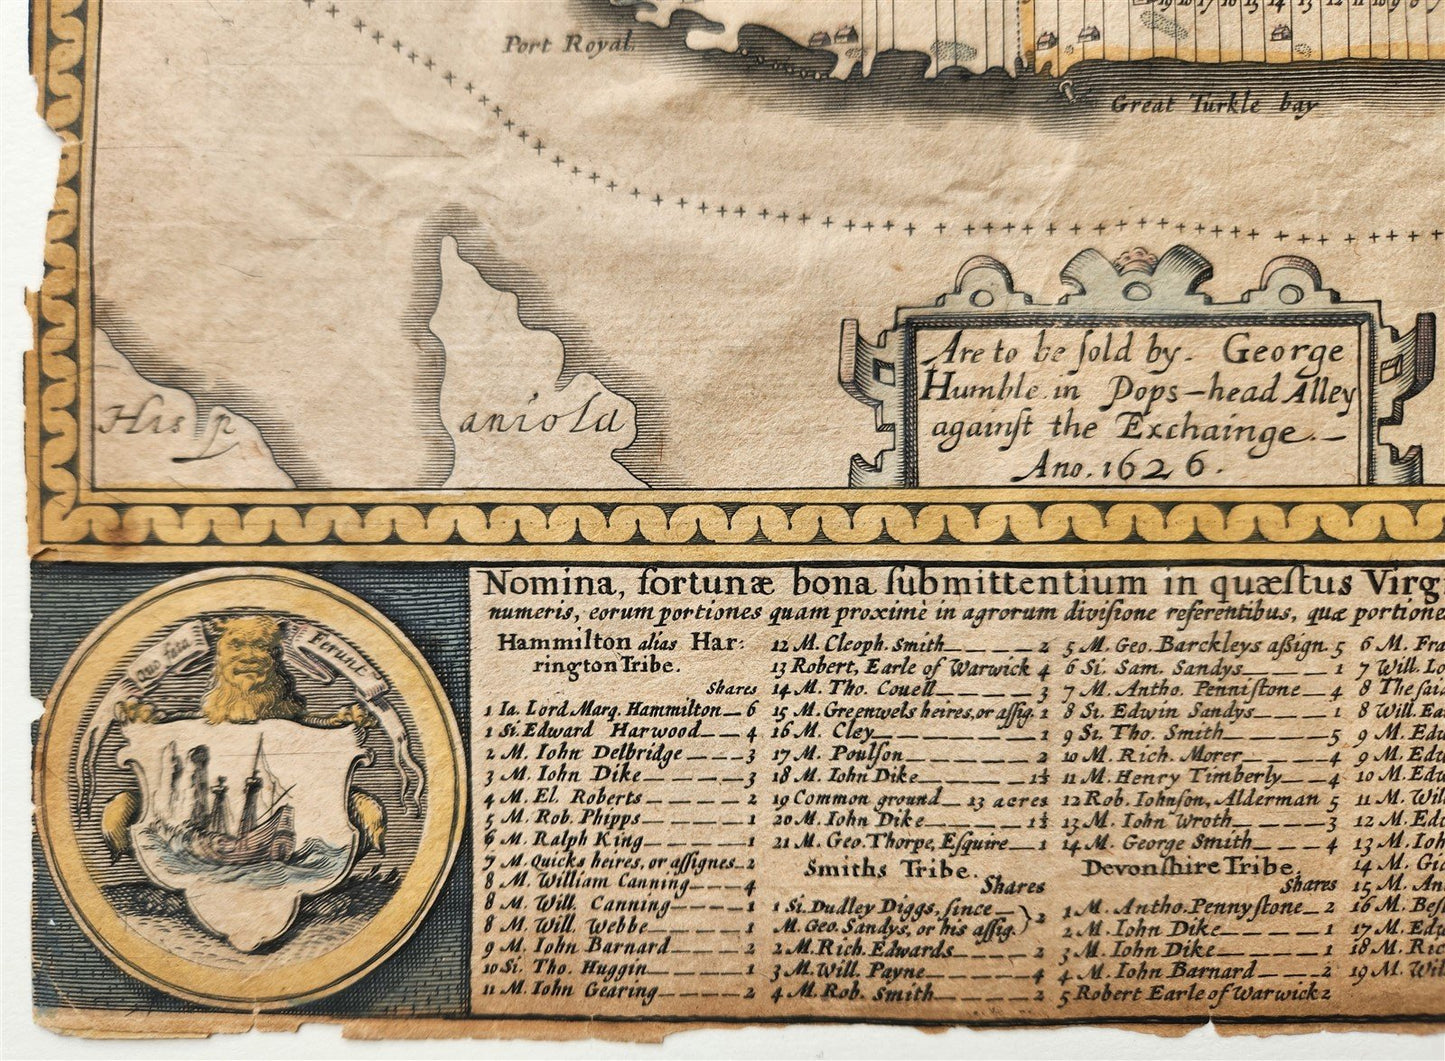 19 18 17 16 15 14 13 12 11 10 9 8 7
Port Royal.
Great Turkle bay
Hisp
aniola
Are to be ſold by. George
Humble in Pops-head Alley
againſt the Exchainge.
Ano. 1626.
Quo fata Ferunt
Nomina, fortunæ bona ſubmittentium in quæſtus Virg
numeris, eorum portiones quam proximè in agrorum diviſione referentibus, quæ portione
Hammilton alias Har:
rington Tribe.
Shares
1 Ia. Lord Marq. Hammilton 6
1 Si. Edward Harwood 4
2 M. Iohn Delbridge 3
3 M. Iohn Dike 3
4 M. El. Roberts 2
5 M. Rob. Phipps 1
6 M. Ralph King 1
7 M. Quicks heires, or aſſignes 2
8 M. William Canning 4
8 M. Will. Canning 1
8 M. Will. Webbe 1
9 M. Iohn Barnard 2
10 Si. Tho. Huggin 1
11 M. Iohn Gearing 2
12 M. Cleoph. Smith 2
13 Robert, Earle of Warwick 4
14 M. Tho. Covell 3
15 M. Greenwels heires, or aſſig. 1
16 M. Cley 1
17 M. Poulſon 2
18 M. Iohn Dike 1½
19 Common ground 13 acres
20 M. Iohn Dike 1½
21 M. Geo. Thorpe, Eſquire 1
Smiths Tribe.
Shares
1 Si. Dudley Diggs, ſince
M. Geo. Sandys, or his aſſig.) 2
2 M. Rich. Edwards 2
3 M. Will. Payne 4
4 M. Rob. Smith 2
5 M. Geo. Barckleys aſſign. 5
6 Si. Sam. Sandys 1
7 M. Antho. Penniſtone 4
8 Si. Edwin Sandys 1
9 Si. Tho. Smith 5
10 M. Rich. Morer 4
11 M. Henry Timberly 4
12 Rob. Iohnſon, Alderman 5
13 M. Iohn Wroth 3
14 M. George Smith 4
Devonſhire Tribe.
Shares
1 M. Antho. Pennyſtone 2
2 M. Iohn Dike 1
3 M. Iohn Dike 1
4 M. Iohn Barnard 2
5 Robert Earle of Warwick 2
6 M. Fra
7 Will. Lo
8 The ſai
8 Will. Ea
9 M. Edw
9 M. Edw
10 M. Edw
11 M. Wil
12 M. Ed
13 M. Ioh
14 M. Gi
15 M. An
16 M. Beſ
17 M. Edw
18 M. Ric
19 M. Wil